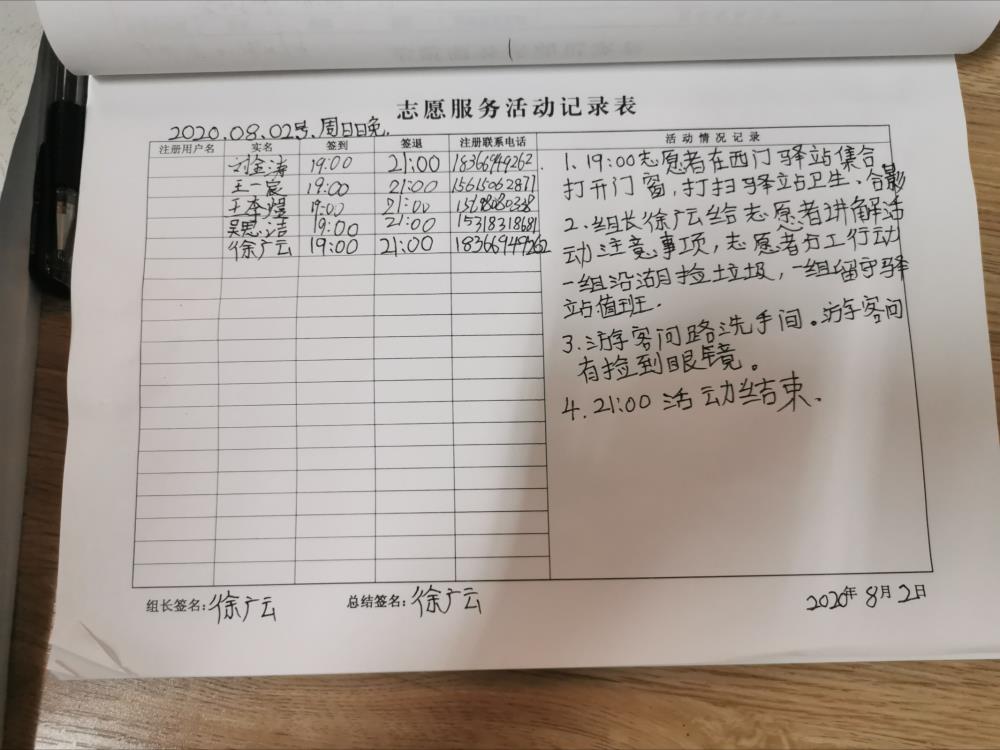 志愿服务活动记录表
2020.08.02号.周日日晚.
注册用户名 实名 签到 签退 注册联系电话 活动情况记录
刘金涛 19:00 21:00 18366949262
王一宸 19:00 21:00 15615062877
王李煜 19:00 21:00
吴思洁 19:00 21:00 15318318681
徐广云 19:00 21:00 18366949262
1. 19:00志愿者在西门驿站集合
打开门窗,打扫驿站卫生、合影
2.组长徐广云给志愿者讲解活
动注意事项,志愿者分工行动
一组沿湖捡垃圾,一组留守驿
站值班.
3.游客问路洗手间。游客问
有捡到眼镜。
4.21:00 活动结束.
组长签名:徐广云 总结签名:徐广云 2020年 8月 2日